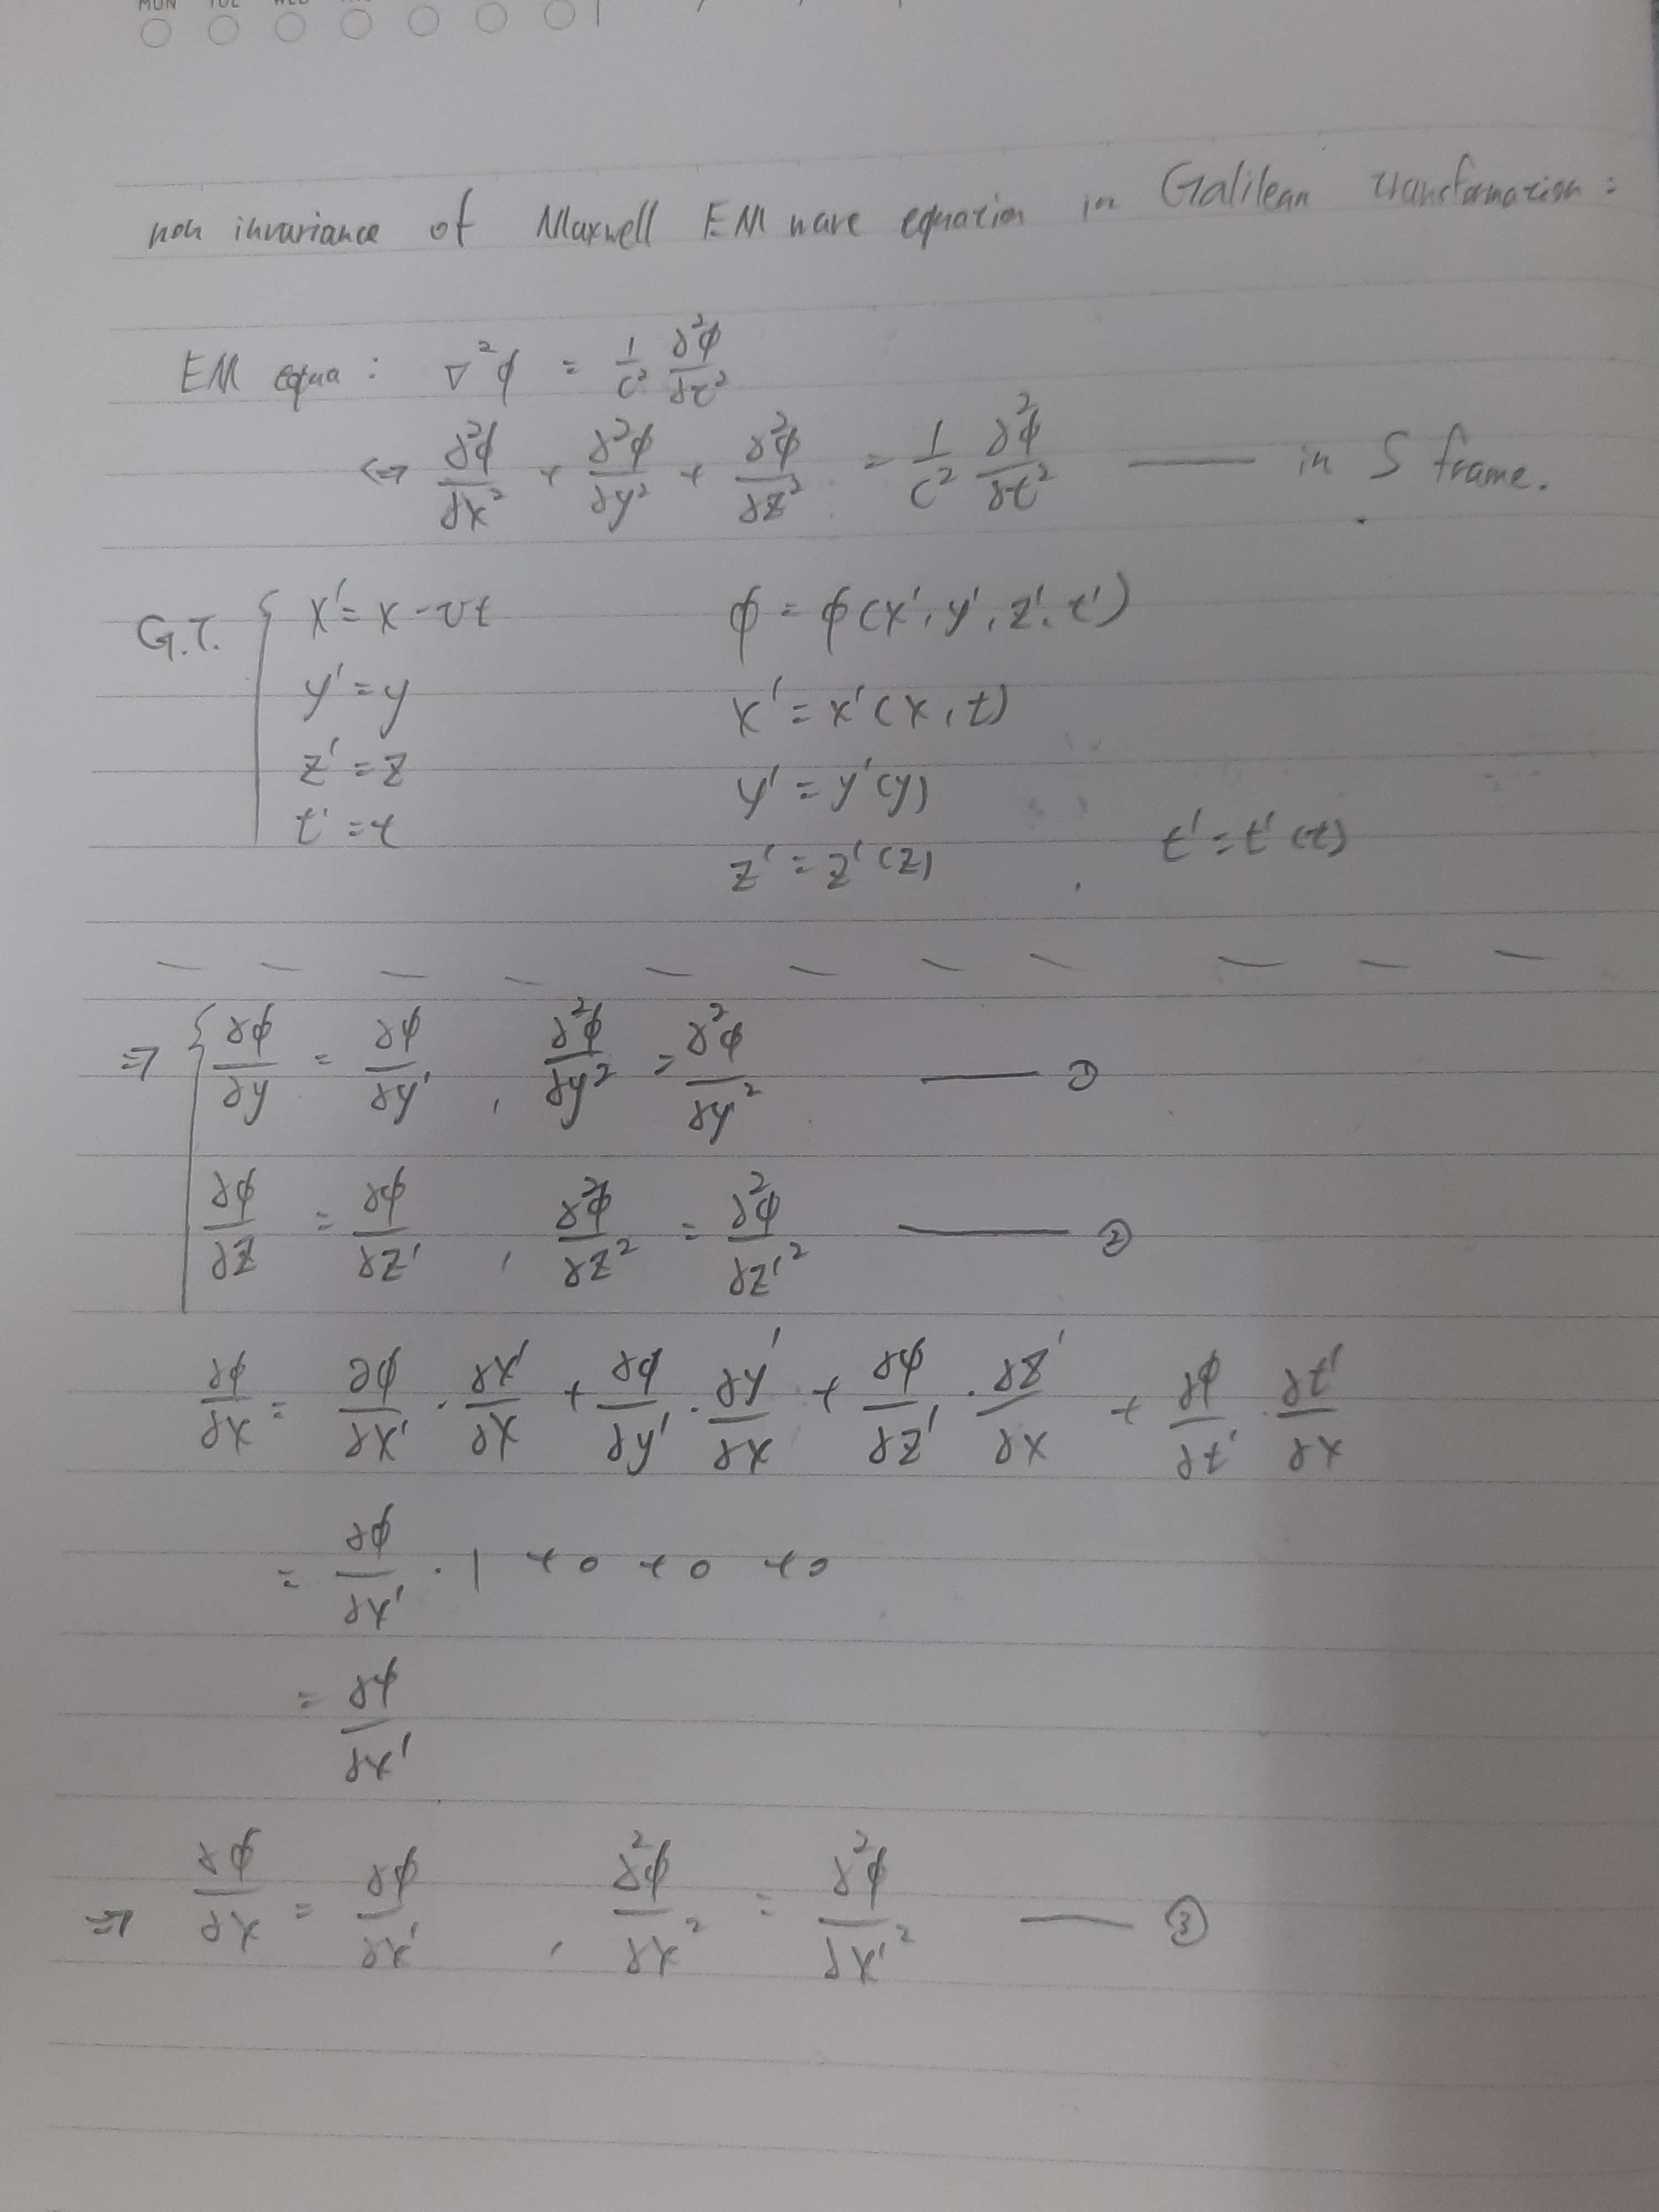 MON TUE WED
non invariance of Maxwell EM wave equation in Galilean transformation:
EM equa: ∇²φ = 1/c² ∂²φ/∂t²
<=> ∂²φ/∂x² + ∂²φ/∂y² + ∂²φ/∂z² = 1/c² ∂²φ/∂t² —— in S frame.
G.T. { x' = x - vt    φ = φ(x', y', z', t')
y' = y    x' = x'(x, t)
z' = z    y' = y'(y)
t' = t    z' = z'(z) , t' = t'(t)
— — — — — — — — — — —
=> { ∂φ/∂y = ∂φ/∂y' , ∂²φ/∂y² = ∂²φ/∂y'² —— ①
∂φ/∂z = ∂φ/∂z' , ∂²φ/∂z² = ∂²φ/∂z'² —— ②
∂φ/∂x = ∂φ/∂x' · ∂x'/∂x + ∂φ/∂y' · ∂y'/∂x + ∂φ/∂z' · ∂z'/∂x + ∂φ/∂t' · ∂t'/∂x
= ∂φ/∂x' · 1 + 0 + 0 + 0
= ∂φ/∂x'
=> ∂φ/∂x = ∂φ/∂x' , ∂²φ/∂x² = ∂²φ/∂x'² —— ③